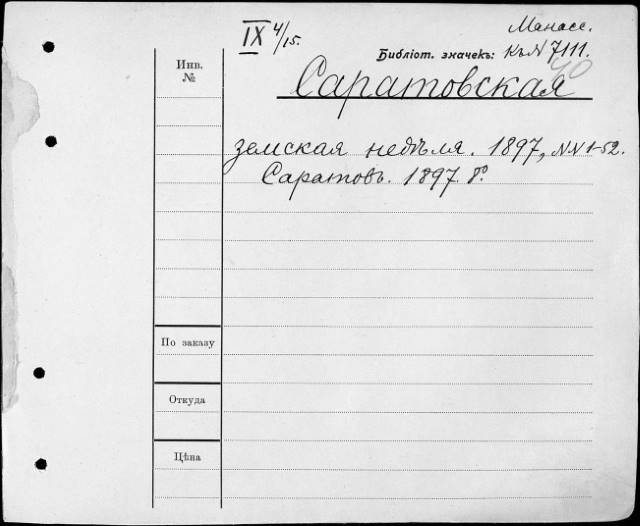 IX 4/15.
Манасс.
Библіот. значекъ: Къ N 7111.
40
Инв. №
Саратовская
земская недѣля. 1897, NN 1-52.
Саратовъ. 1897. 8º.
По заказу
Откуда
Цѣна